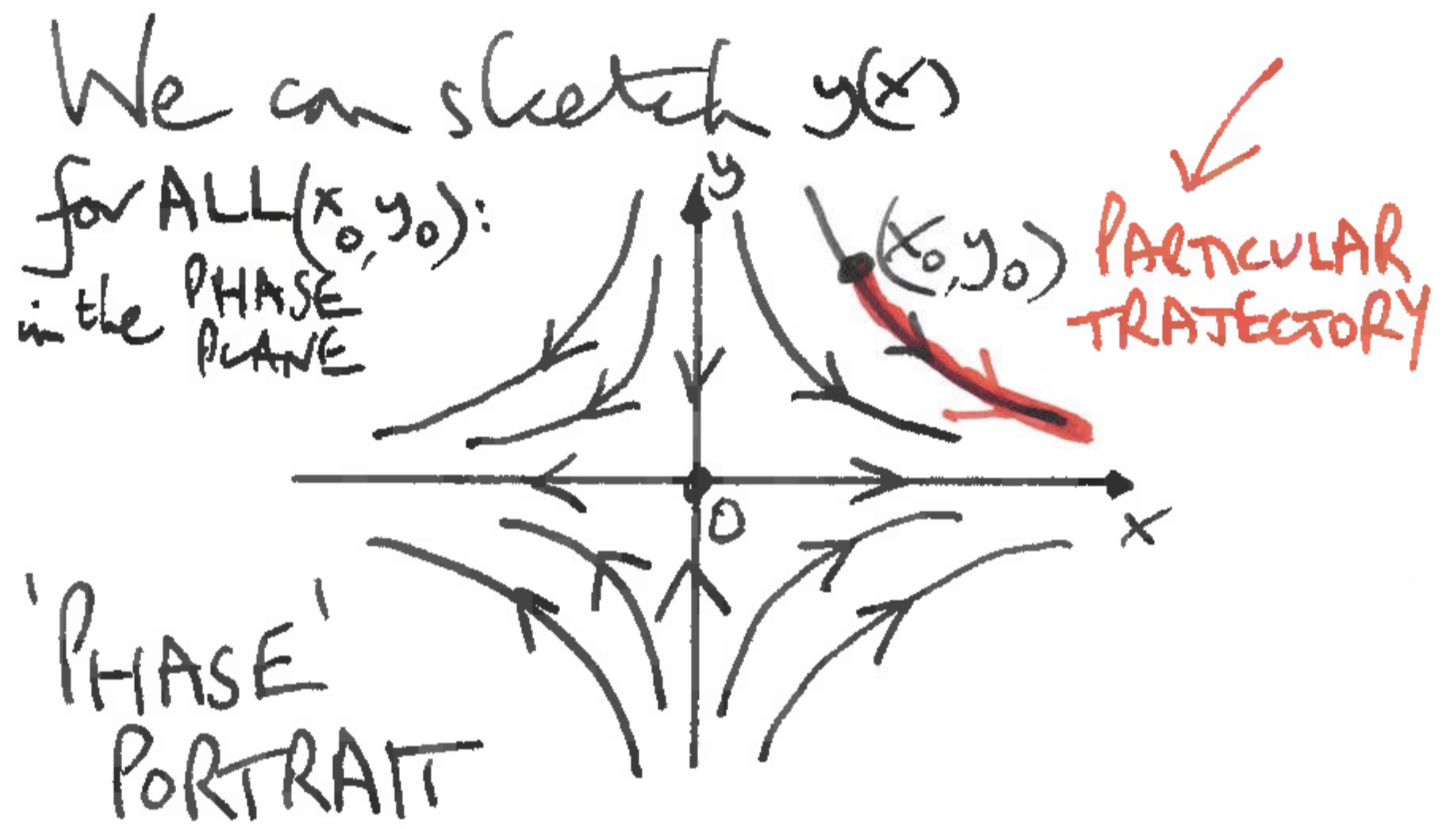 We can sketch y(x)
for ALL (x₀, y₀):
in the PHASE
PLANE
y
(x₀, y₀)
PARTICULAR
TRAJECTORY
0
x
'PHASE'
PORTRAIT